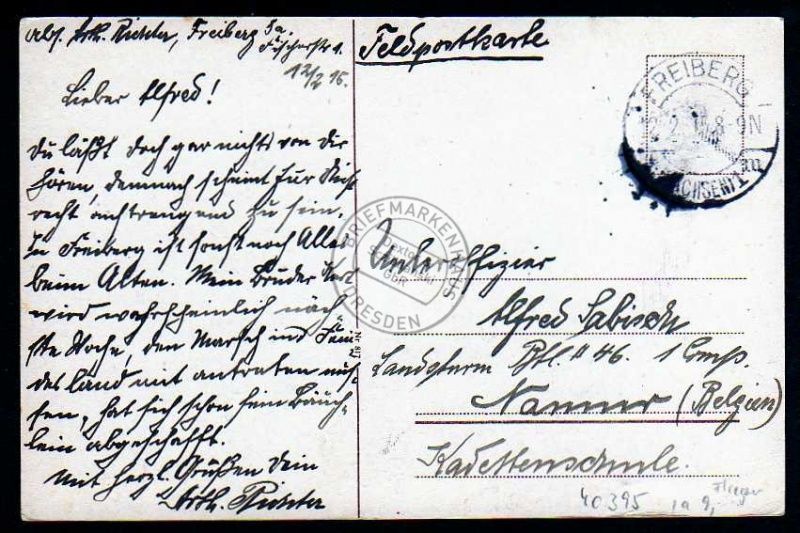 Abs. Arth. Richter, Freiberg Sa.
Fischerstr 1.
12/2 15.
Lieber Alfred!
Du läßt doch gar nichts von Dir
hören, demnach scheint Eur Dienst
recht anstrengend zu sein.
In Freiberg ist sonst noch Alles
beim Alten. Mein Bruder
wird wahrscheinlich näch-
ste Woche, den Marsch ins Fein-
desland mit antreten müs-
sen, hat sich schon sein Bäuch-
lein abgeschafft.
Mit herzl. Grüßen Dein
Arth. Richter
Feldpostkarte
FREIBERG
8-9N
(SACHSEN) 1
Unteroffizier
Alfred
Landsturm Btl. II 46. 1 Comp.
Namur (Belgien)
Kadettenschule.
40395
Flieger
BRIEFMARKENHAUS
DRESDEN